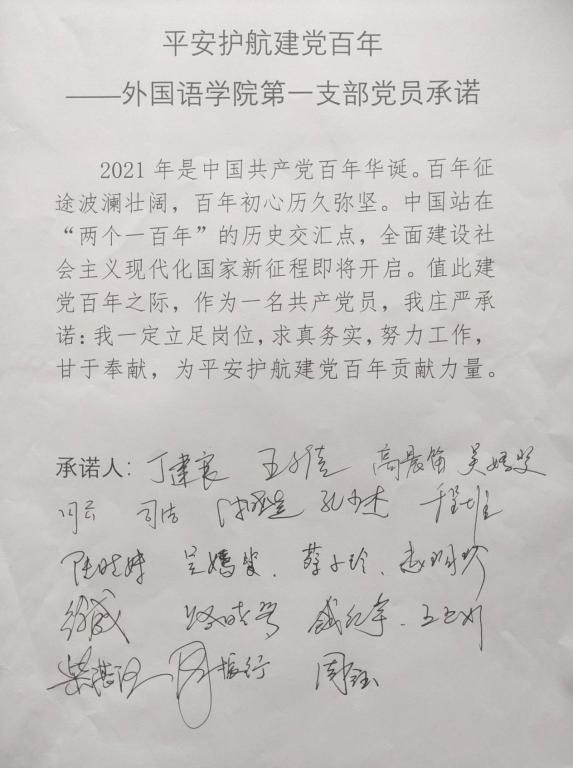 平安护航建党百年
——外国语学院第一支部党员承诺
2021年是中国共产党百年华诞。百年征
途波澜壮阔，百年初心历久弥坚。中国站在
“两个一百年”的历史交汇点，全面建设社
会主义现代化国家新征程即将开启。值此建
党百年之际，作为一名共产党员，我庄严承
诺：我一定立足岗位，求真务实，努力工作，
甘于奉献，为平安护航建党百年贡献力量。
承诺人：丁建良 高晨笛
孔少杰
陆晓婷 蔡小玲
徐威
周振行 周钰